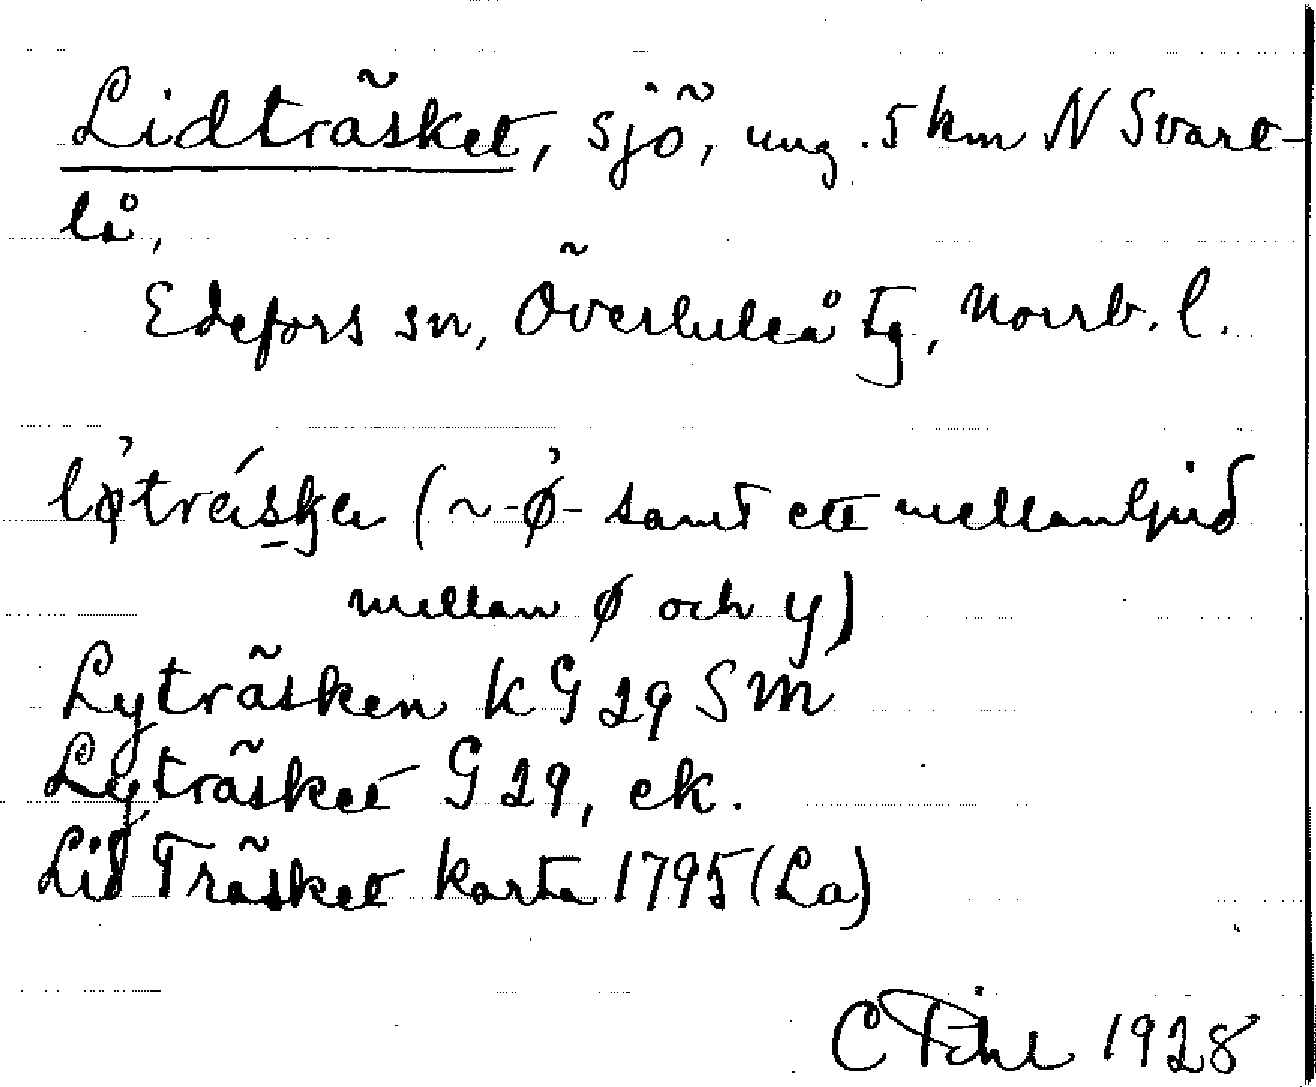 Lidträsket, sjö, ung. 5 km N Svart-
lå,
Edefors sn, Överluleå tg, Norrb. l.
(~ -ø- samt ett mellanljud
mellan ø och y)
Lyträsken KG 29 SM
Lyträsket G 29, ek.
Lid Träsket karta 1795 (La)
C Pihl 1928